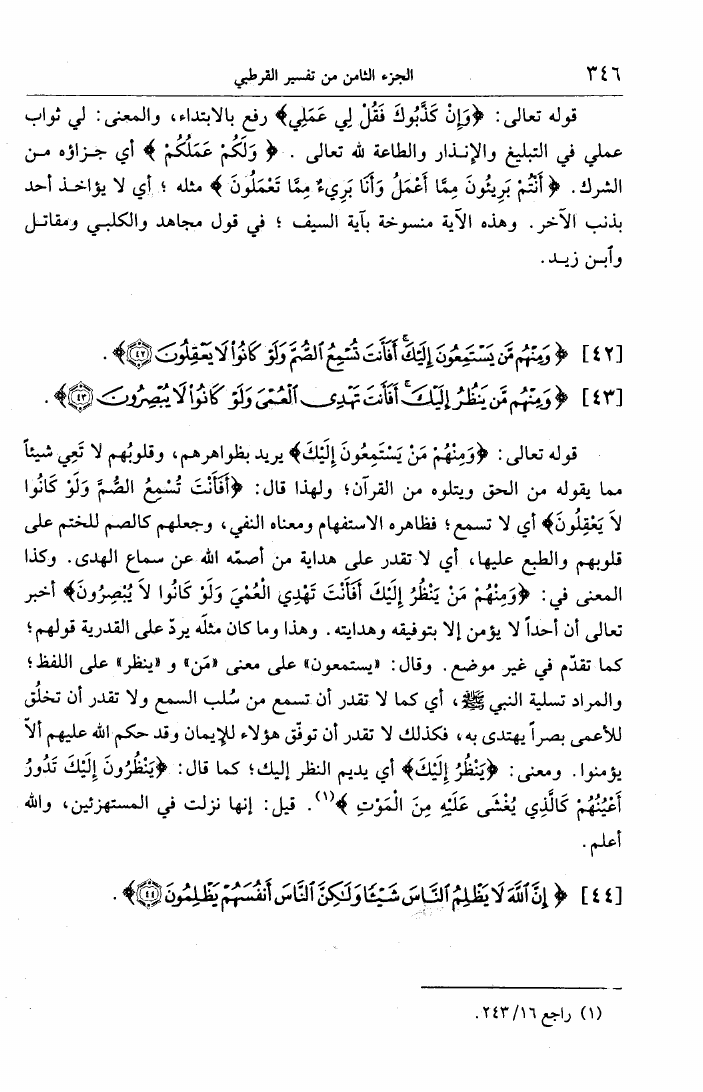 ٣٤٦ الجزء الثامن من تفسير القرطبي
قوله تعالى: ﴿وَإِنْ كَذَّبُوكَ فَقُلْ لِي عَمَلِي﴾ رفع بالابتداء، والمعنى: لي ثواب
عملي في التبليغ والإنذار والطاعة لله تعالى. ﴿ وَلَكُمْ عَمَلُكُمْ ﴾ أي جزاؤه من
الشرك. ﴿ أَنْتُمْ بَرِيئُونَ مِمَّا أَعْمَلُ وَأَنَا بَرِيءٌ مِمَّا تَعْمَلُونَ ﴾ مثله ؛ أي لا يؤاخذ أحد
بذنب الآخر. وهذه الآية منسوخة بآية السيف ؛ في قول مجاهد والكلبي ومقاتل
وٱبن زيد.
[٤٢] ﴿ وَمِنْهُم مَّن يَسْتَمِعُونَ إِلَيْكَۚ أَفَأَنتَ تُسْمِعُ ٱلصُّمَّ وَلَوْ كَانُواْ لَا يَعْقِلُونَ ٤٢﴾.
[٤٣] ﴿ وَمِنْهُم مَّن يَنظُرُ إِلَيْكَۚ أَفَأَنتَ تَهْدِى ٱلْعُمْىَ وَلَوْ كَانُواْ لَا يُبْصِرُونَ ٤٣﴾.
قوله تعالى: ﴿وَمِنْهُمْ مَنْ يَسْتَمِعُونَ إِلَيْكَ﴾ يريد بظواهرهم، وقلوبُهم لا تَعِي شيئاً
مما يقوله من الحق ويتلوه من القرآن؛ ولهذا قال: ﴿أَفَأَنْتَ تُسْمِعُ الصُّمَّ وَلَوْ كَانُوا
لاَ يَعْقِلُونَ﴾ أي لا تسمع؛ فظاهره الاستفهام ومعناه النفي، وجعلهم كالصم للختم على
قلوبهم والطبع عليها، أي لا تقدر على هداية من أصمّه الله عن سماع الهدى. وكذا
المعنى في: ﴿وَمِنْهُمْ مَنْ يَنْظُرُ إِلَيْكَ أَفَأَنْتَ تَهْدِي الْعُمْيَ وَلَوْ كَانُوا لاَ يُبْصِرُونَ﴾ أخبر
تعالى أن أحداً لا يؤمن إلا بتوفيقه وهدايته. وهذا وما كان مثلَه يردّ على القدرية قولهم؛
كما تقدّم في غير موضع. وقال: «يستمعون» على معنى «مَن» و «ينظر» على اللفظ؛
والمراد تسلية النبي ﷺ، أي كما لا تقدر أن تسمع من سُلب السمع ولا تقدر أن تخلُق
للأعمى بصراً يهتدى به، فكذلك لا تقدر أن توفّق هؤلاء للإيمان وقد حكم الله عليهم ألاّ
يؤمنوا. ومعنى: ﴿يَنْظُرُ إِلَيْكَ﴾ أي يديم النظر إليك؛ كما قال: ﴿يَنْظُرُونَ إِلَيْكَ تَدُورُ
أَعْيُنُهُمْ كَالَّذِي يُغْشَى عَلَيْهِ مِنَ الْمَوْتِ ﴾(١). قيل: إنها نزلت في المستهزئين، والله
أعلم.
[٤٤] ﴿ إِنَّ ٱللَّهَ لَا يَظْلِمُ ٱلنَّاسَ شَيْئًا وَلَٰكِنَّ ٱلنَّاسَ أَنفُسَهُمْ يَظْلِمُونَ ٤٤﴾.
(١) راجع ٢٤٣/١٦.